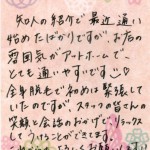 知人の紹介で最近通い
始めたばかりですが、お店の
雰囲気がアットホームで、
とても通いやすいです♡
全身脱毛で初めは緊張して
いたのですが、スタッフの皆さんの
笑顔と会話のおかげで、リラックス
してうけることができてます。
よろしくお願いします